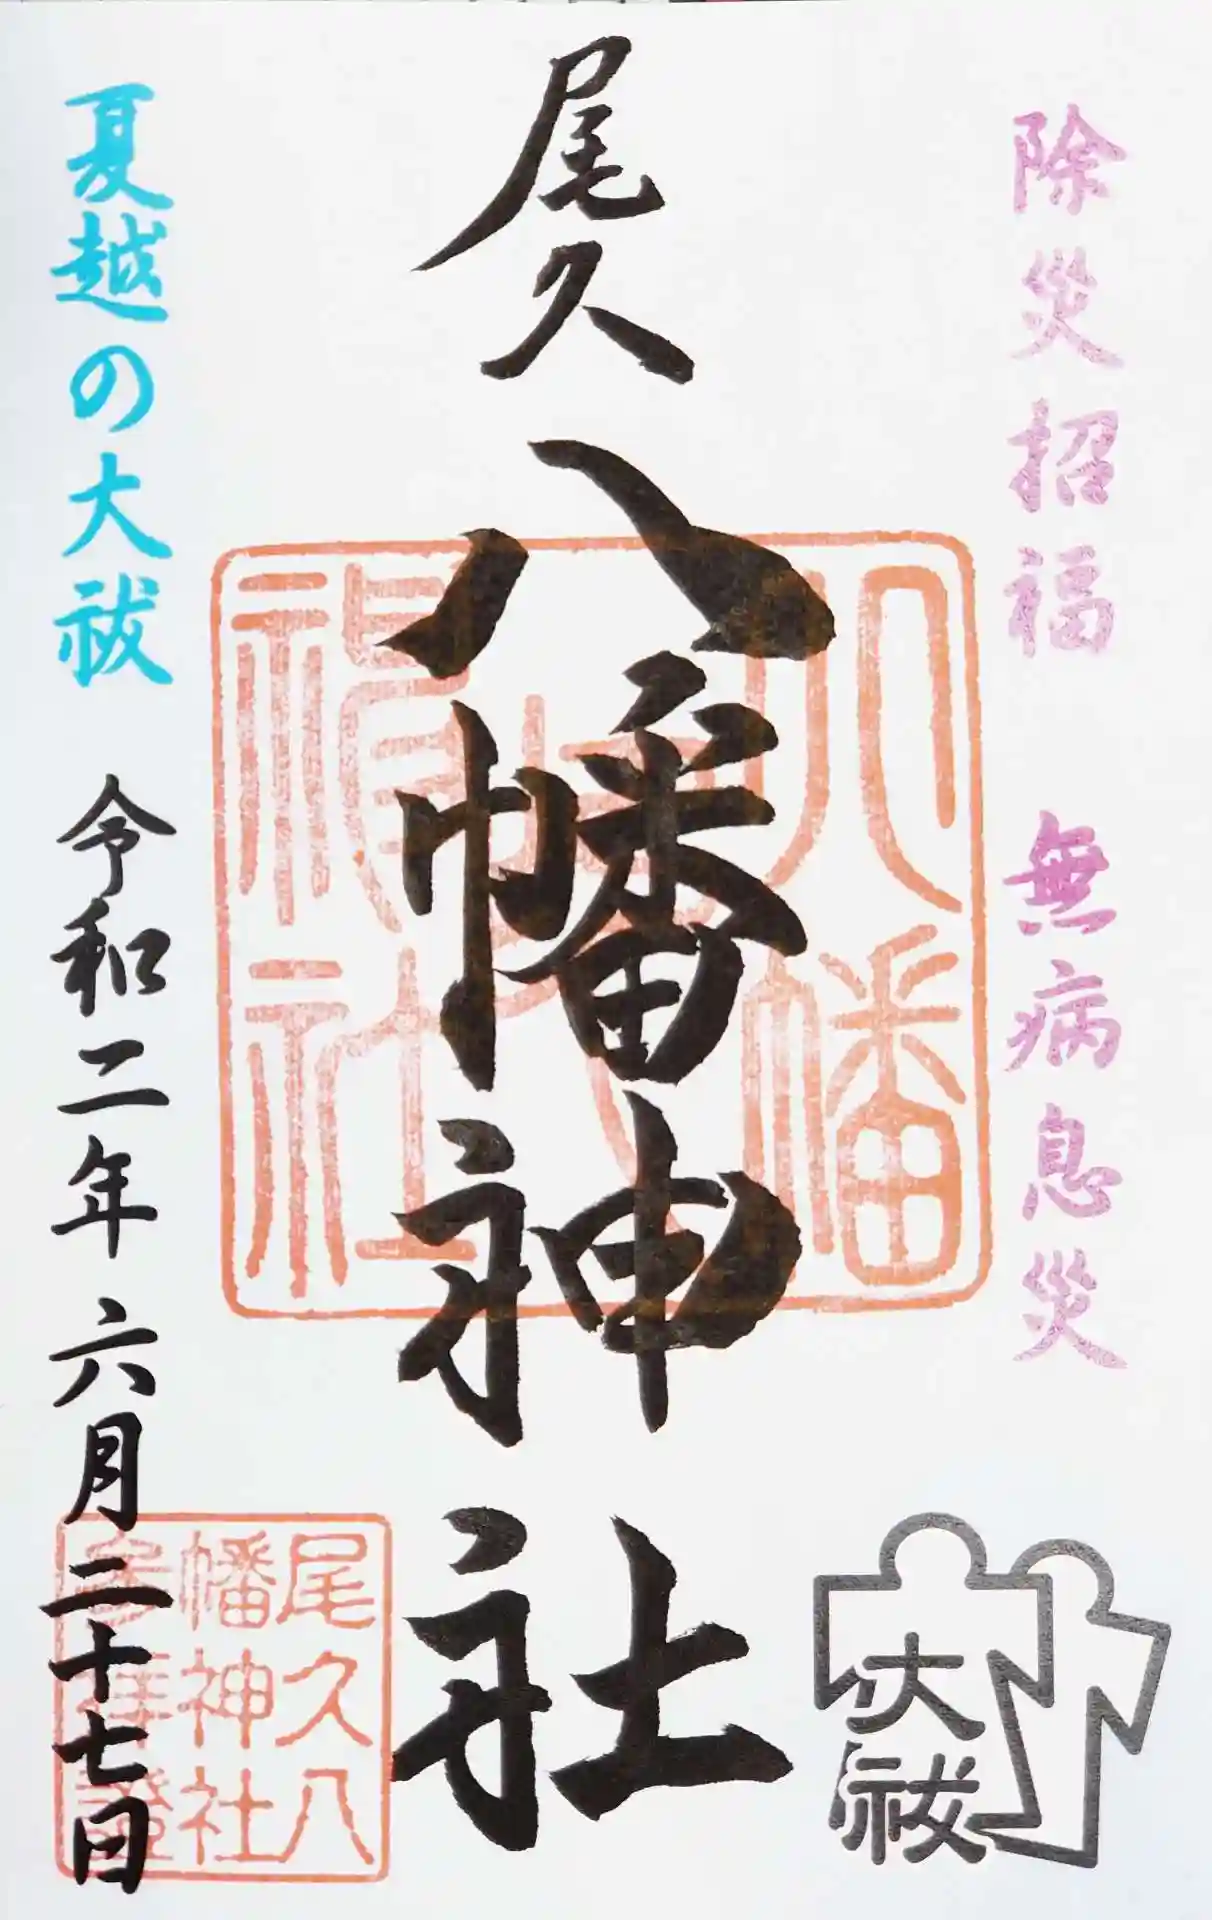 除災招福 無病息災
尾久八幡神社
夏越の大祓 令和二年六月二十七日
八幡
神社
尾久八
幡神社
大祓